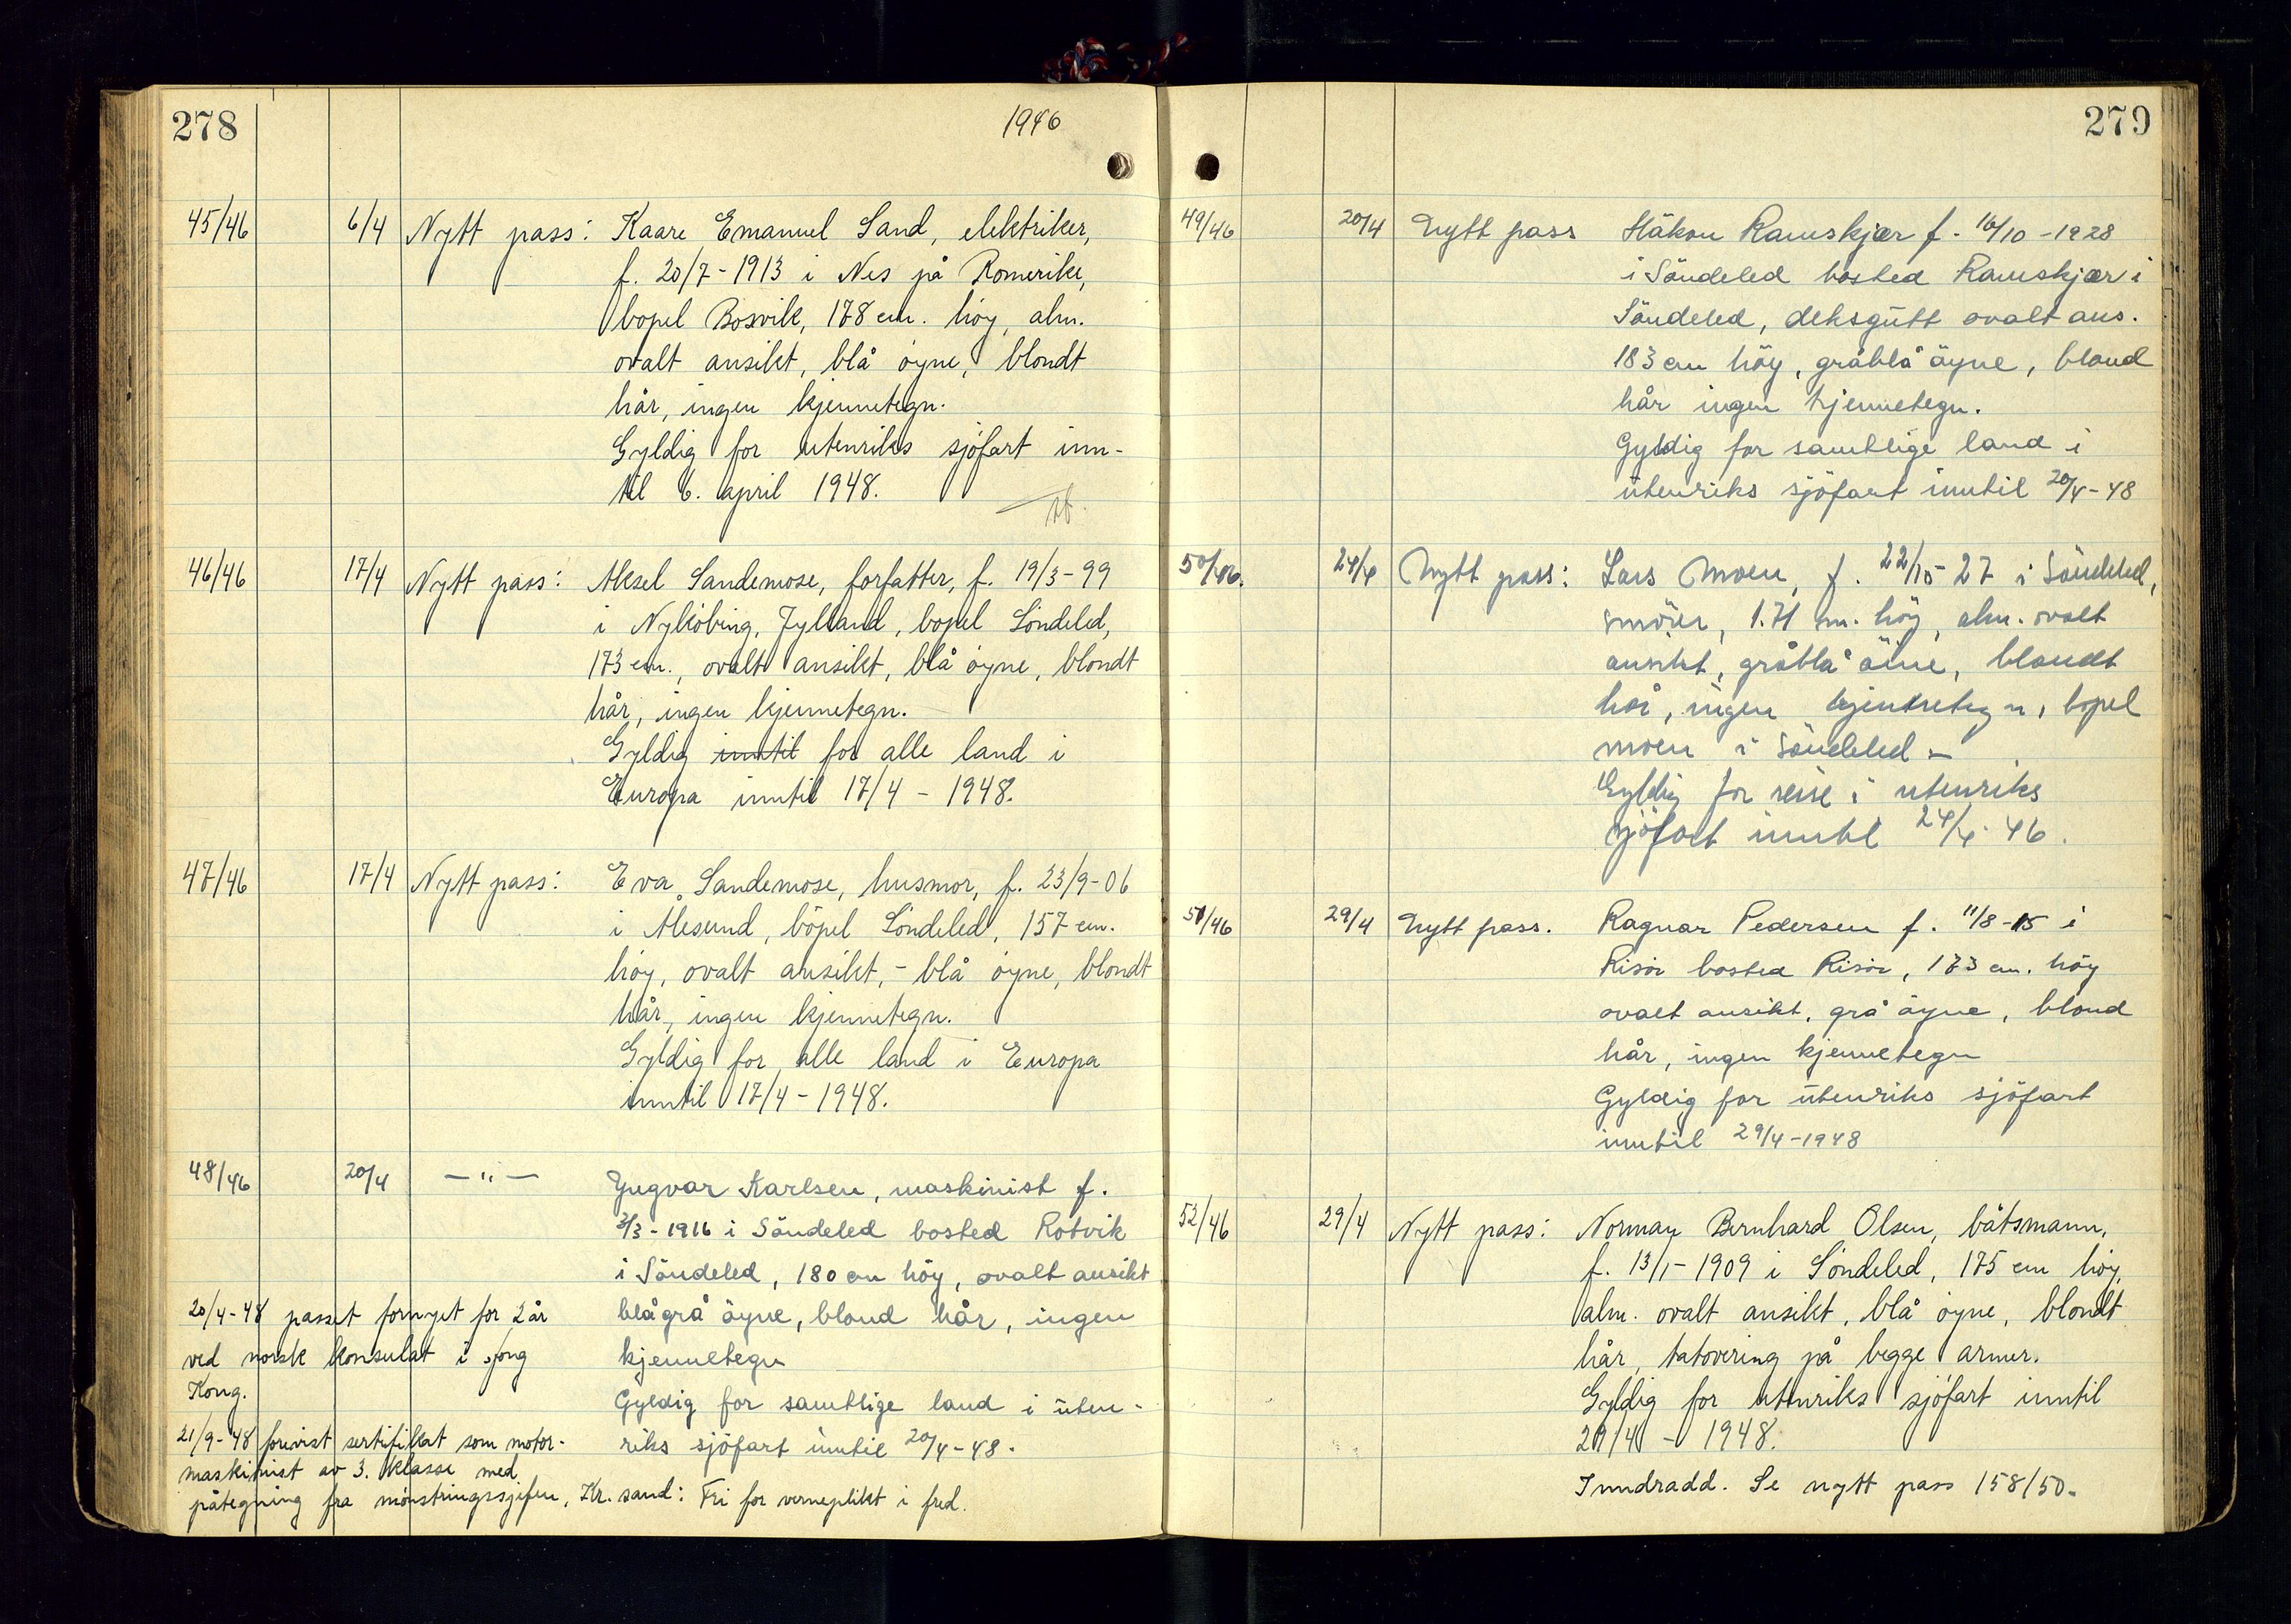 278
1946
45/46 6/4 Nytt pass: Kaare Emanuel Sand, elektriker,
f. 20/7-1913 i Nes på Romerike,
bopel Bosvik, 178 cm. høy, alm.
ovalt ansikt, blå øyne, blondt
hår, ingen kjennetegn.
Gyldig for utenriks sjøfart inn-
til 6. april 1948.
46/46 17/4 Nytt pass: Aksel Sandemose, forfatter, f. 19/3-99
i Nykøbing, Jylland, bopel Søndeled,
173 cm., ovalt ansikt, blå øyne, blondt
hår, ingen kjennetegn.
Gyldig inntil for alle land i
Europa inntil 17/4 - 1948.
47/46 17/4 Nytt pass: Eva Sandemose, husmor, f. 23/9-06
i Ålesund, bopel Søndeled, 157 cm.
høy, ovalt ansikt, - blå øyne, blondt
hår, ingen kjennetegn.
Gyldig for alle land i Europa
inntil 17/4 - 1948.
48/46 20/4 - " - Yngvar Karlsen, maskinist f.
3/3-1916 i Söndeled bosted Rotvik
i Söndeled, 180 cm höy, ovalt ansikt
blågrå öyne, blond hår, ingen
kjennetegn
Gyldig for samtlige land i uten-
riks sjöfart inntil 20/4-48.
20/4-48 passet fornyet for 2 år
ved norsk konsulat i Hong
Kong.
21/9-48 forevist sertifikat som motor-
maskinist av 3. klasse med
påtegning fra mønstringssjefen, Kr. sand: Fri for verneplikt i fred.
279
49/46 20/4 Nytt pass Håkon Ramskjær f. 16/10-1928
i Söndeled bosted Ramskjær i
Söndeled, deksgutt ovalt ans.
183 cm höy, gråblå öyne, blond
hår ingen kjennetegn.
Gyldig for samtlige land i
utenriks sjöfart inntil 20/4-48
50/46. 24/4 Nytt pass: Lars Moen, f. 22/10-27 i Söndeled,
smörer, 1.71 m. höy, alm. ovalt
ansikt, gråblå öine, blondt
hår, ingen kjennetegn, bopel
moen i Söndeled -
Gyldig for reise i utenriks
sjöfart inntil 24/4-46.
51/46 29/4 Nytt pass. Ragnar Pedersen f. 11/8-15 i
Risör bosted Risör, 173 cm. höy
ovalt ansikt, grå öyne, blond
hår, ingen kjennetegn
Gyldig for utenriks sjöfart
inntil 29/4-1948
52/46 29/4 Nytt pass: Norman Bernhard Olsen, båtsmann,
f. 13/1-1909 i Søndeled, 175 cm høy,
alm. ovalt ansikt, blå øyne, blondt
hår, tatovering på begge armer.
Gyldig for utenriks sjøfart inntil
29/4 - 1948.
Inndradd. Se nytt pass 158/50.